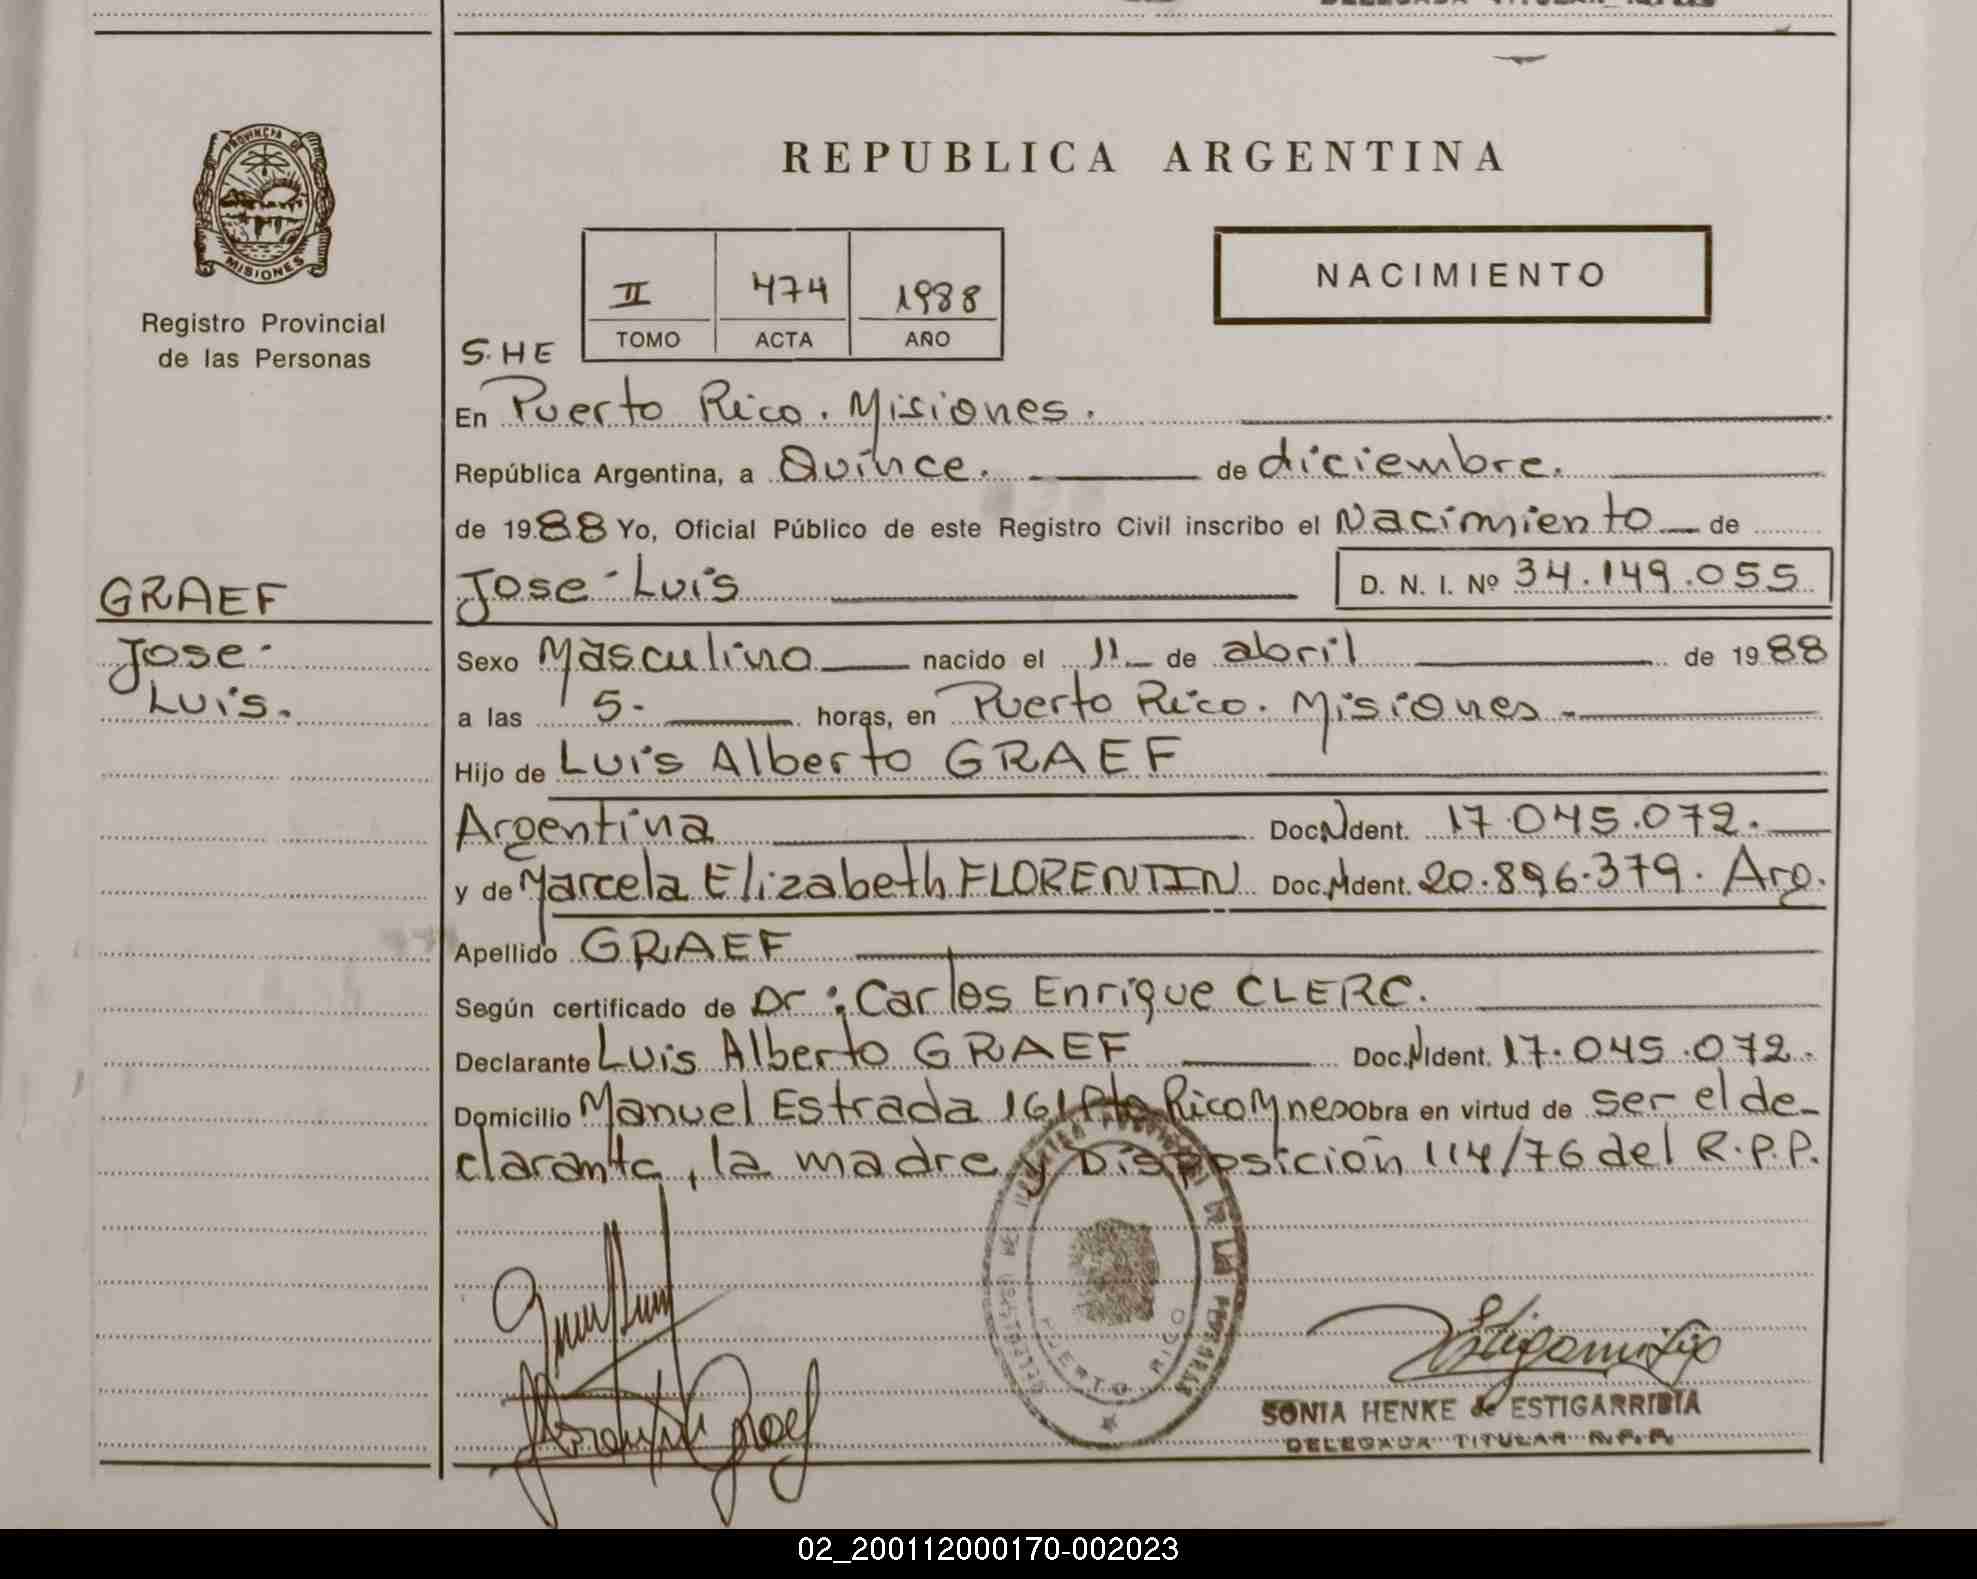 PROVINCIA DE
MISIONES
Registro Provincial
de las Personas
GRAEF
Jose
Luis.
REPUBLICA ARGENTINA
II 474 1988
TOMO ACTA AÑO
NACIMIENTO
S.HE
En Puerto Rico. Misiones.
República Argentina, a Quince. de diciembre.
de 1988 Yo, Oficial Público de este Registro Civil inscribo el Nacimiento de
Jose Luis D. N. I. Nº 34.149.055
Sexo Masculino nacido el 11 de abril de 1988
a las 5- horas, en Puerto Rico. Misiones
Hijo de Luis Alberto GRAEF
Argentina Doc.N.Ident. 17.045.072.
y de Marcela Elizabeth FLORENTIN Doc.N.Ident. 20.896.379. Arg.
Apellido GRAEF
Según certificado de Dr: Carlos Enrique CLERC.
Declarante Luis Alberto GRAEF Doc.N.Ident. 17.045.072.
Domicilio Manuel Estrada 161 Pto Rico Mnes Obra en virtud de ser el de-
clarante, la madre y Disposición 114/76 del R.P.P.
DE LAS PERSONAS
PUERTO RICO
Graef
SONIA HENKE de ESTIGARRIBIA
DELEGADA TITULAR R.P.P.
02_200112000170-002023